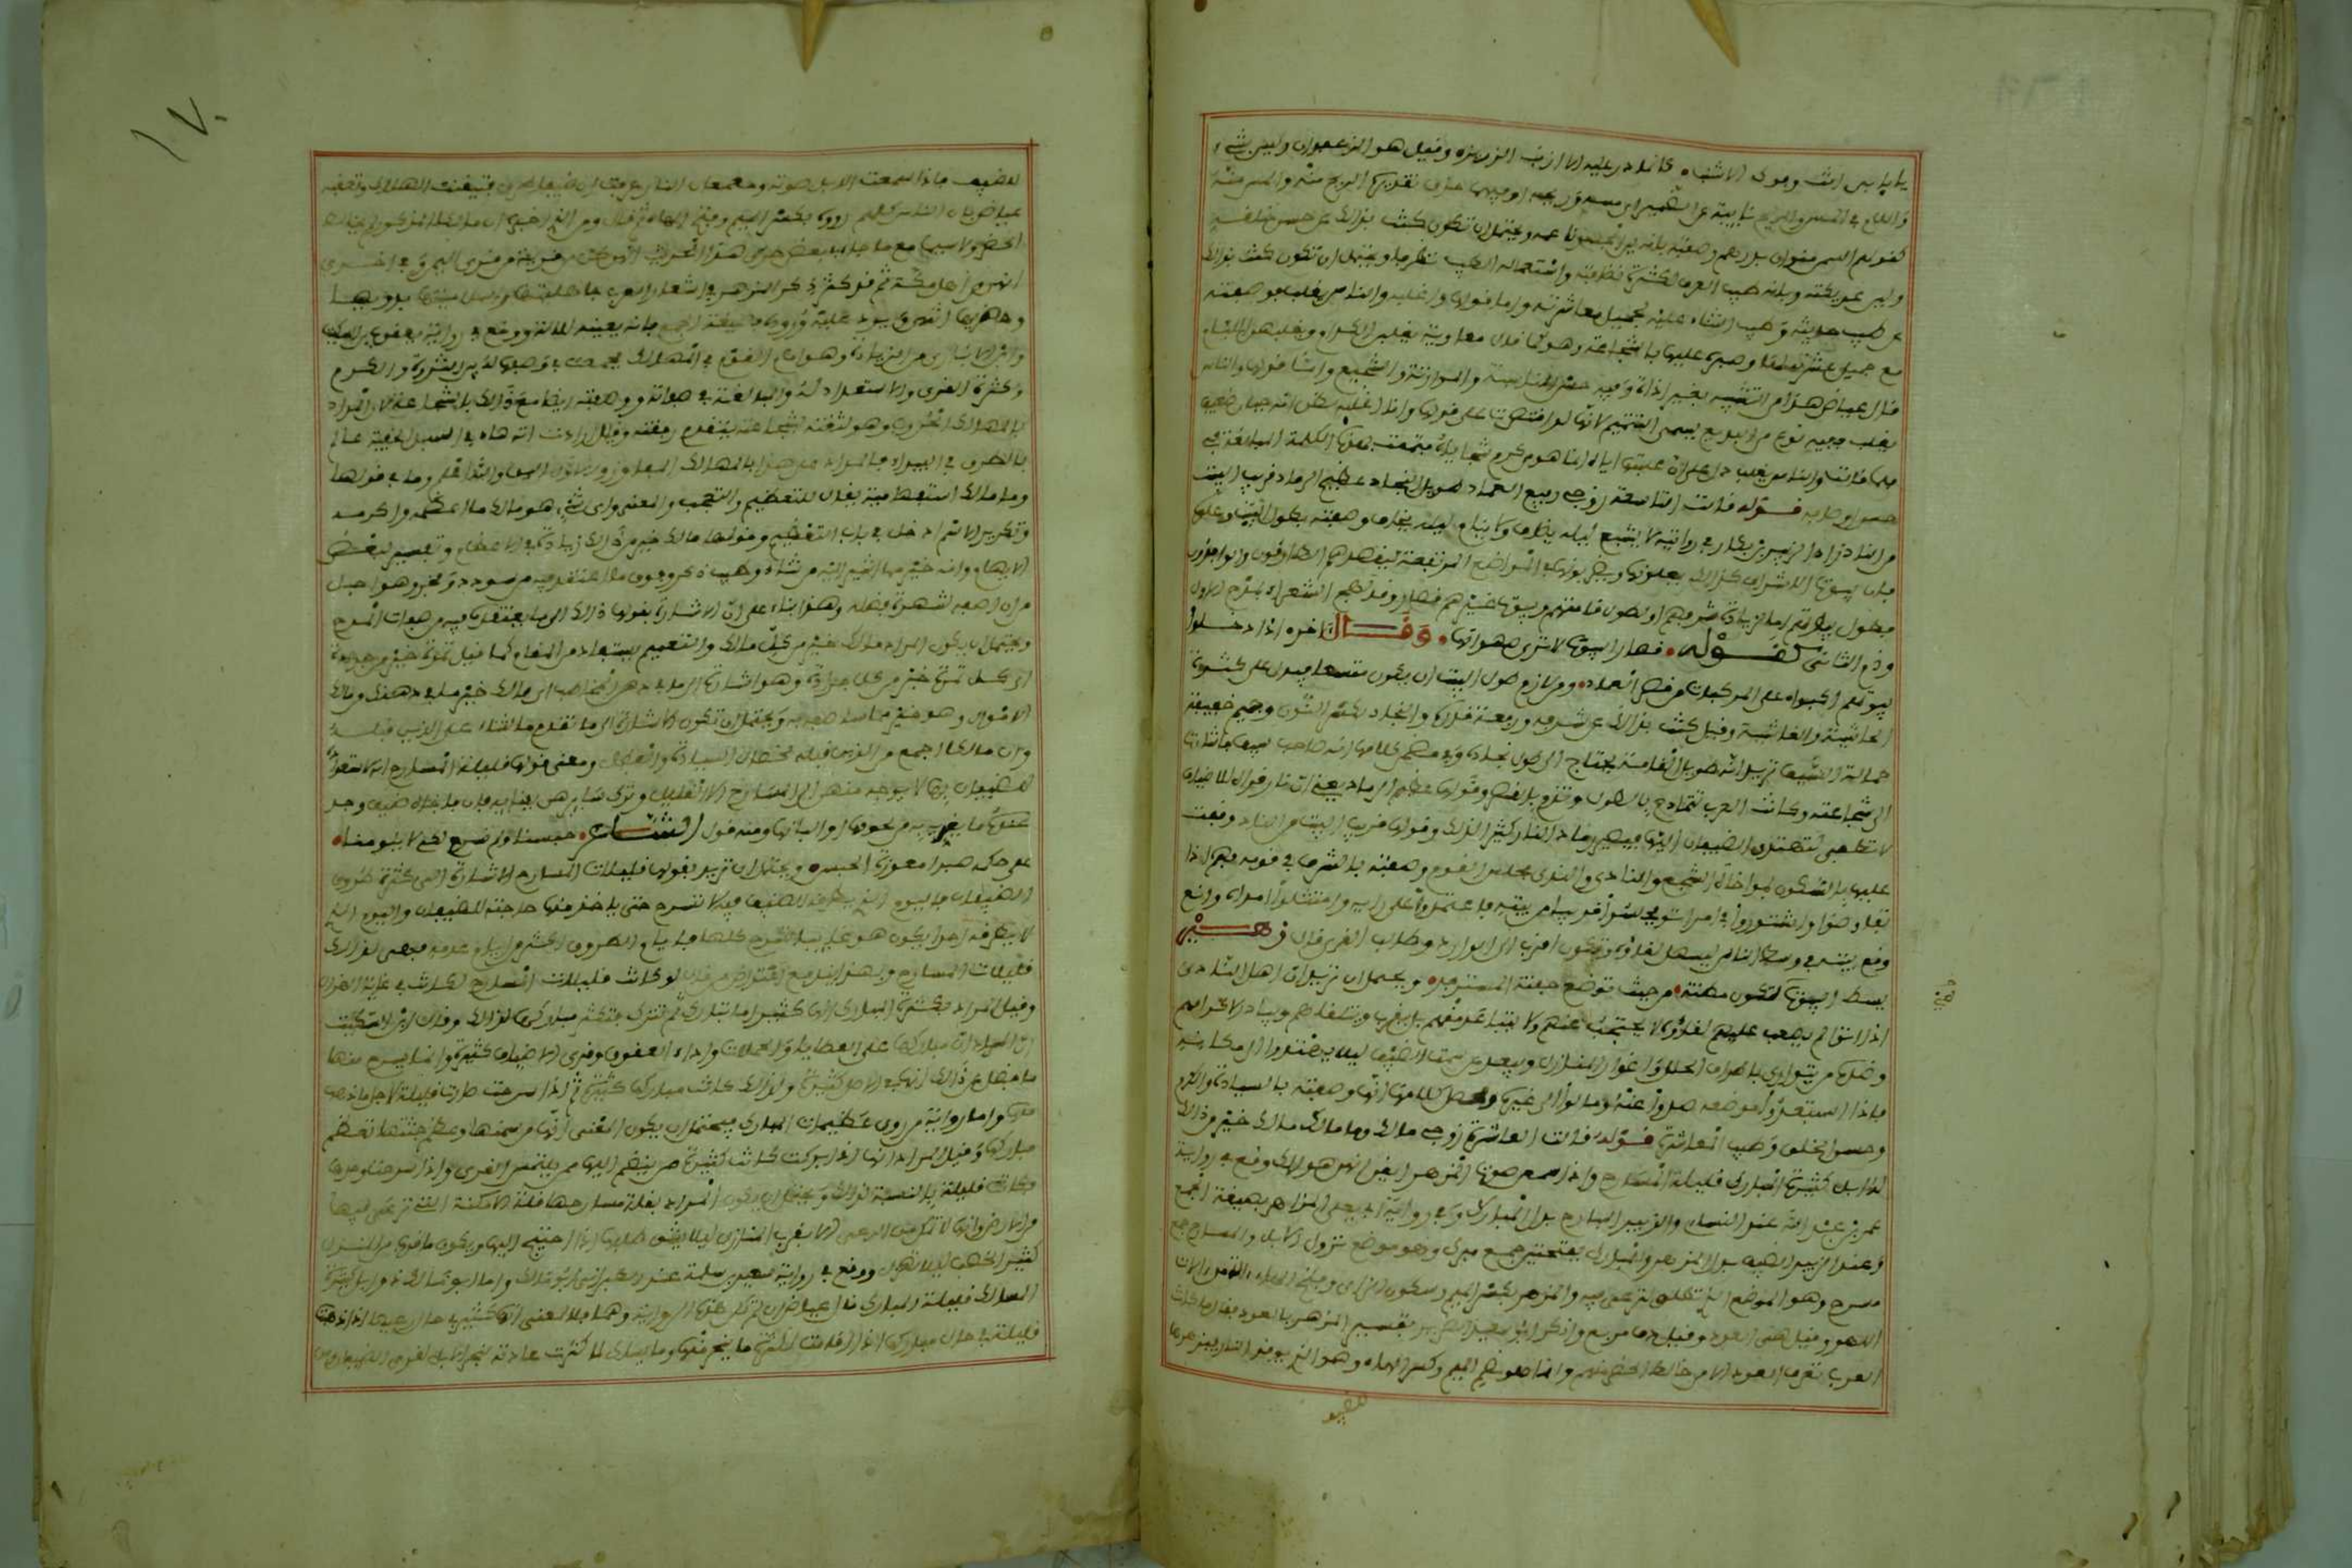 يا بابي انت وفوك الاشنب كانما ذر عليه الزرنب وقيل هو الزعفران وليس بشيء
واللام في المس والريح نائبة عن الضمير اي مسه وريحه او فيهما حذف تقديره الريح منه والمس منه
كقولهم السمن منوان بدرهم وصفته بانه لين ويحتمل ان تكون كنت بذلك عن حسن خلقه
ولين عريكته وبانه طيب العرق لكثرة نظافته واستعماله الطيب تظرفا ويحتمل ان تكون كنت بذلك
عن طيب حديثه وطيب الثناء عليه لجميل معاشرته واما قولها واغلبه والناس يغلب فوصفته
مع جميل عشرته لها وصبره عليها بالشجاعة وهو كما قال معاوية يغلبن الكرام ويغلبهن اللئام
قال عياض هذا من التشبيه بغير اداة وفيه حسن المناسبة والموازنة والتسجيع واما قولها والناس
يغلب ففيه نوع من البديع يسمى التتميم لانها لو اقتصرت على قولها وانا اغلبه لظن انه جبان ضعيف
فلما قالت والناس يغلب دل على ان غلبتها اياه انما هو من كرم سجاياه فتممت بهذه الكلمة المبالغة في
حسن اوصافه قوله قالت التاسعة زوجي رفيع العماد طويل النجاد عظيم الرماد قريب البيت
من الناد زاد الزبير بن بكار في روايته لا يشبع ليلة يضاف ولا ينام ليلة يخاف وصفته بطول البيت وعلوه
فان بيوت الاشراف كذلك يعلونها ويضربونها في المواضع المرتفعة ليقصدهم الطارقون والوافدون
فطول بيوتهم اما لزيادة شرفهم او لطول قاماتهم وبيوت غيرهم قصار وقد لهج الشعراء بمدح الاول
وذم الثاني كقوله • قصار البيوت لا ترى صهواتها • وقال اخر اذا دخلوا
بيوتهم اكبوا على الركبات من قصر العماد • ومن لازم طول البيت ان يكون متسعا فيدل على كثرة
الحاشية والغاشية وقيل كنت بذلك عن شرفه ورفعة قدره والنجاد بكسر النون وجيم خفيفة
حمالة السيف تريد انه طويل القامة يحتاج الى طول نجاده وفي ضمن كلامها انه صاحب سيف فاشارت
الى شجاعته وكانت العرب تتمادح بالطول وتذم بالقصر وقولها عظيم الرماد يعني ان نار قراه للاضياف
لا تطفى لتهتدي الضيفان اليها فيصير رماد النار كثيرا لذلك وقولها قريب البيت من الناد وقفت
عليها بالسكون لمواخاة السجع والنادي والندي مجلس القوم وصفته بالشرف في قومه فهم اذا
تفاوضوا واشتوروا في امر اتوا فجلسوا قريبا من بيته فاعتمدوا على رايه وامتثلوا امره او انه
وضع بيته في وسط الناس ليسهل لقاؤه ويكون اقرب الى الوارد وطالب القرى قال زهير
يسط البيوت لكي يكون مظنة • من حيث توضع جفنة المسترفد • ويحتمل ان تريد ان اهل النادي
اذا اتوه لم يصعب عليهم لقاؤه لا يحتجب عنهم ولا يتباعد منهم بل يقرب ويتلقاهم ويبادر لاكرامهم
وضده من يتوارى باطراف الحلل واغوار المنازل ويبعد عن سمت الضيف ليلا يهتدوا الى مكانه
فاذا استبعدوا موضعه صدوا عنه ومالوا الى غيره ومحصل كلامها انها وصفته بالسيادة والكرم
وحسن الخلق وطيب المعاشرة قوله قالت العاشرة زوجي مالك وما مالك مالك خير من ذلك
له ابل كثيرات المبارك قليلات المسارح واذا سمعن صوت المزهر ايقن انهن هوالك وقع في رواية
عمر بن عبد الله عند النساي والزبير المبارح بدل المبارك وفي رواية ابي يعلى المزاهر بصيغة الجمع
وعند الزبير الضيف بدل المزهر والمبارك بفتحتين جمع مبرك وهو موضع نزول الابل والمسارح جمع
مسرح وهو الموضع الذي تطلق لترعى فيه والمزهر بكسر الميم وسكون الزاي وفتح الهاء الة من الات
اللهو وقيل هي العود وقيل دف مربع وانكر ابو سعيد الضرير تفسير المزهر بالعود فقال ما كانت
العرب تعرف العود الا من خالط الحضر منهم وانما هو بضم الميم وكسر الهاء وهو الذي يوقد النار فيزهرها
للضيف
١٧٠
للضيف فاذا سمعت الابل صوته ومعمعان النار عرفت ان ضيفا طرق فتيقنت الهلاك وتعقبه
عياض بان الناس كلهم رووه بكسر الميم وفتح الهاء ثم قال ومن الذي اخبره ان مالكا المذكور لم يخالط
الحضر ولا سيما مع ما جاء في بعض طرق هذا الحديث انهن كن من قرية من قرى اليمن وفي اخرى
انهن من اهل مكة ثم قد كثر ذكر المزهر في اشعار العرب جاهليتها واسلامها بدويها
وحضريها انتهى ويرد عليه وروده بصيغة الجمع فانه بعينه للالة ووقع في رواية يعقوب بن السكيت
وابن الانباري من الزيادة وهو امام القوم في المهالك فجمعت في وصفها له بين الثروة والكرم
وكثرة القرى والاستعداد له والمبالغة في صفاته ووصفته ايضا مع ذلك بالشجاعة لان المراد
بالمهالك الحروب وهو لثقته بشجاعته يتقدم رفقته وقيل ارادت انه هاد في السبل الخفية عالم
بالطرق في البيداء فالمراد على هذا بالمهالك المفاوز والاول اليق والله اعلم وما في قولها
وما مالك استفهامية يقال للتعظيم والتعجب والمعنى واي شيء هو مالك ما اعظمه واكرمه
وتكرير الاسم ادخل في باب التعظيم وقولها مالك خير من ذلك زيادة في الاعظام وتفسير لبعض
الابهام وانه خير مما اشير اليه من ثناء وطيب ذكر وفوق ما اعتقد فيه من سودد وفخر وهو اجل
من ان اصفه لشهرة فضله وهذا بناء على ان الاشارة بقولها ذلك الى ما يعتقد فيه من صفات المدح
ويحتمل ان يكون المراد مالك خير من كل مالك والتعميم يستفاد من المقام كما قيل تمرة خير من جرادة
اي كل تمرة خير من كل جرادة وهو اشارة الى ما في ذهن المخاطب اي مالك خير مما في ذهنك من مالك
الاموال وهو خير مما ساصفه به ويحتمل ان تكون الاشارة الى ما تقدم من الثناء على الذين قبله
وان مالكا اجمع من الذين قبله لخصال السيادة والفضل ومعنى قولها قليلات المسارح انه لاستعداده
للضيفان بها لا يوجه منهن الى المسارح الا القليل ويترك سائرهن بفنائه فان فاجاه ضيف وجد
عنده ما يقريه به من لحومها والبانها ومنه قول الشاعر • حبسنا ولم نسرح لكي لا يلومنا •
على حكمه صبرا معودة الحبس • ويحتمل ان تريد بقولها قليلات المسارح الاشارة الى كثرة طروق
الضيفان فاليوم الذي يطرقه الضيف فيه لا تسرح حتى ياخذ منها حاجته للضيفان واليوم الذي
لا يطرقه احد او يكون هو غائبا تسرح كلها فايام الطروق اكثر من ايام عدمه فهي لذلك
قليلات المسارح وبهذا يندفع اعتراض من قال لو كانت قليلات المسارح لكانت في غاية الهزال
وقيل المراد بكثرة المبارك انها كثيرا ما تثار فتحلب ثم تترك فتكثر مباركها لذلك وقال ابن السكيت
ان المراد ان مباركها على العطايا والحملات واداء الحقوق وقرى الاضياف كثيرة وانما يسرح منها
ما فضل عن ذلك فهي في الاصل كثيرة ولذلك كانت مباركها كثيرة ثم اذا سرحت صارت قليلة لاجل ما ذهب
منها واما رواية من روى عظيمات المبارك فيحتمل ان يكون المعنى انها من سمنها وعظم جثتها تعظم
مباركها وقيل المراد انها اذا بركت كانت كثيرة لكثرة من ينضم اليها ممن يلتمس القرى واذا سرحت سرحت وحدها
فكانت قليلة بالنسبة لذلك ويحتمل ان يكون المراد بقلة مسارحها قلة الامكنة التي ترعى فيها
من الارض وانها لا تمكن من الرعي الا بقرب المنازل ليلا يشق طلبها اذا احتيج اليها ويكون ما قرب من المنزل
كثير الخصب ليلا تهزل ووقع في رواية سعيد بن سلمة عند الطبراني ابو مالك وما ابو مالك ذو ابل كثيرة
المسالك قليلة المبارك قال عياض ان لم تكن هذه الرواية وهما فالمعنى انها كثيرة في حال رعيها اذا ذهبت
قليلة في حال مباركها اذا قامت لكثرة ما ينحر منها وما يسلك منها